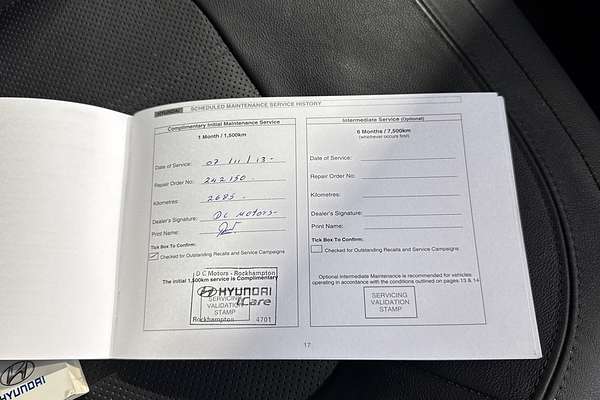 HYUNDAI SCHEDULED MAINTENANCE SERVICE HISTORY
Complimentary Initial Maintenance Service
1 Month / 1,500km
Date of Service: 07/11/13-
Repair Order No: 242150.
Kilometres: 2685.
Dealer's Signature: DC Motors-
Print Name:
Tick Box To Confirm:
Checked for Outstanding Recalls and Service Campaigns
The initial 1,500km service is Complimentary
D C Motors - Rockhampton
HYUNDAI
iCare
SERVICING
VALIDATION
STAMP
Rockhampton 4701
Intermediate Service (Optional)
6 Months / 7,500km
(whichever occurs first)
Date of Service:
Repair Order No:
Kilometres:
Dealer's Signature:
Print Name:
Tick Box To Confirm:
Checked for Outstanding Recalls and Service Campaigns
Optional Intermediate Maintenance is recommended for vehicles
operating in accordance with the conditions outlined on pages 13 & 14
SERVICING
VALIDATION
STAMP
17
HYUNDAI